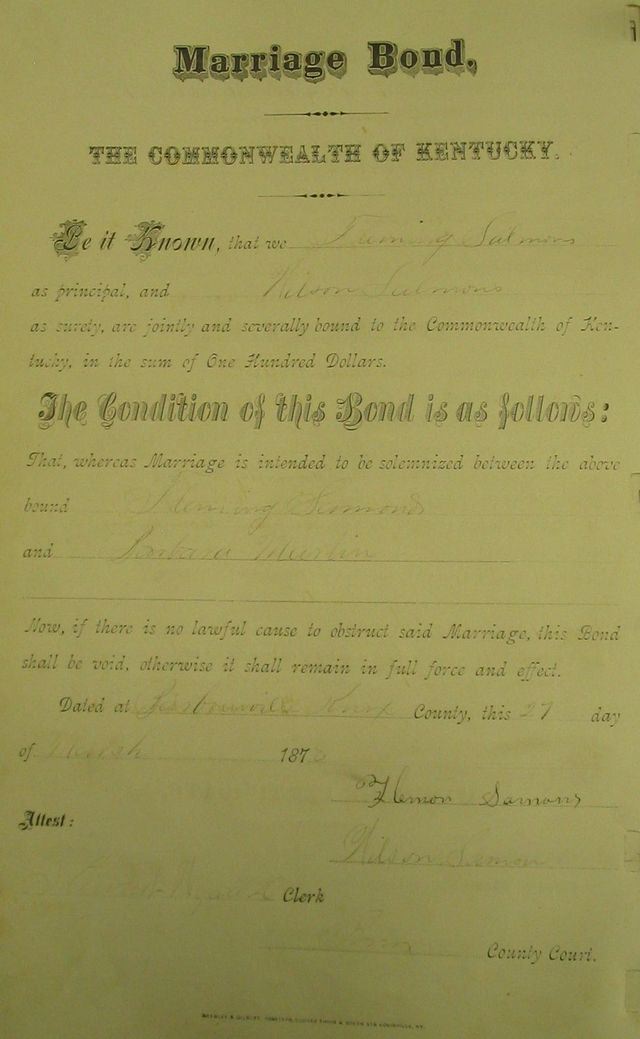 Marriage Bond,
THE COMMONWEALTH OF KENTUCKY.
Be it Known, that we Fleming Salmons
as principal, and Wilson Salmons
as surety, are jointly and severally bound to the Commonwealth of Ken-
tucky, in the sum of One Hundred Dollars.
The Condition of this Bond is as follows:
That, whereas Marriage is intended to be solemnized between the above
bound Fleming
and Barbara
Now, if there is no lawful cause to obstruct said Marriage, this Bond
shall be void, otherwise it shall remain in full force and effect.
Dated at Barbourville Knox County, this 27 day
of March 187
Flemon Samons
Attest:
Wilson
Clerk
Knox County Court.